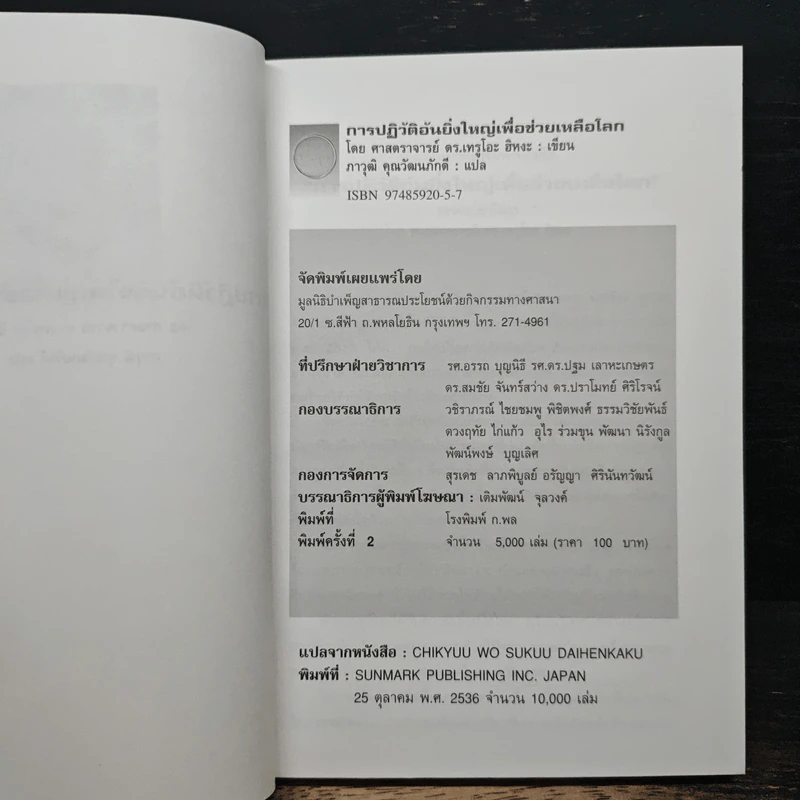 การปฏิวัติอันยิ่งใหญ่เพื่อช่วยเหลือโลก
โดย ศาสตราจารย์ ดร.เทรูโอะ ฮิหงะ : เขียน
ภาวุฒิ คุณวัฒนภักดี : แปล
ISBN 97485920-5-7
จัดพิมพ์เผยแพร่โดย
มูลนิธิบำเพ็ญสาธารณประโยชน์ด้วยกิจกรรมทางศาสนา
20/1 ซ.สีฟ้า ถ.พหลโยธิน กรุงเทพฯ โทร. 271-4961
ที่ปรึกษาฝ่ายวิชาการ รศ.อรรถ บุญนิธี รศ.ดร.ปฐม เลาหะเกษตร
ดร.สมชัย จันทร์สว่าง ดร.ปราโมทย์ ศิริโรจน์
กองบรรณาธิการ วชิราภรณ์ ไชยชมพู พิชิตพงศ์ ธรรมวิชัยพันธ์
ดวงฤทัย ไก่แก้ว อุไร ร่วมขุน พัฒนา นิรังกูล
พัฒน์พงษ์ บุญเลิศ
กองการจัดการ สุรเดช ลาภพิบูลย์ อรัญญา ศิรินันทวัฒน์
บรรณาธิการผู้พิมพ์โฆษณา : เติมพัฒน์ จุลวงค์
พิมพ์ที่ โรงพิมพ์ ก.พล
พิมพ์ครั้งที่ 2 จำนวน 5,000 เล่ม (ราคา 100 บาท)
แปลจากหนังสือ : CHIKYUU WO SUKUU DAIHENKAKU
พิมพ์ที่ : SUNMARK PUBLISHING INC. JAPAN
25 ตุลาคม พ.ศ. 2536 จำนวน 10,000 เล่ม